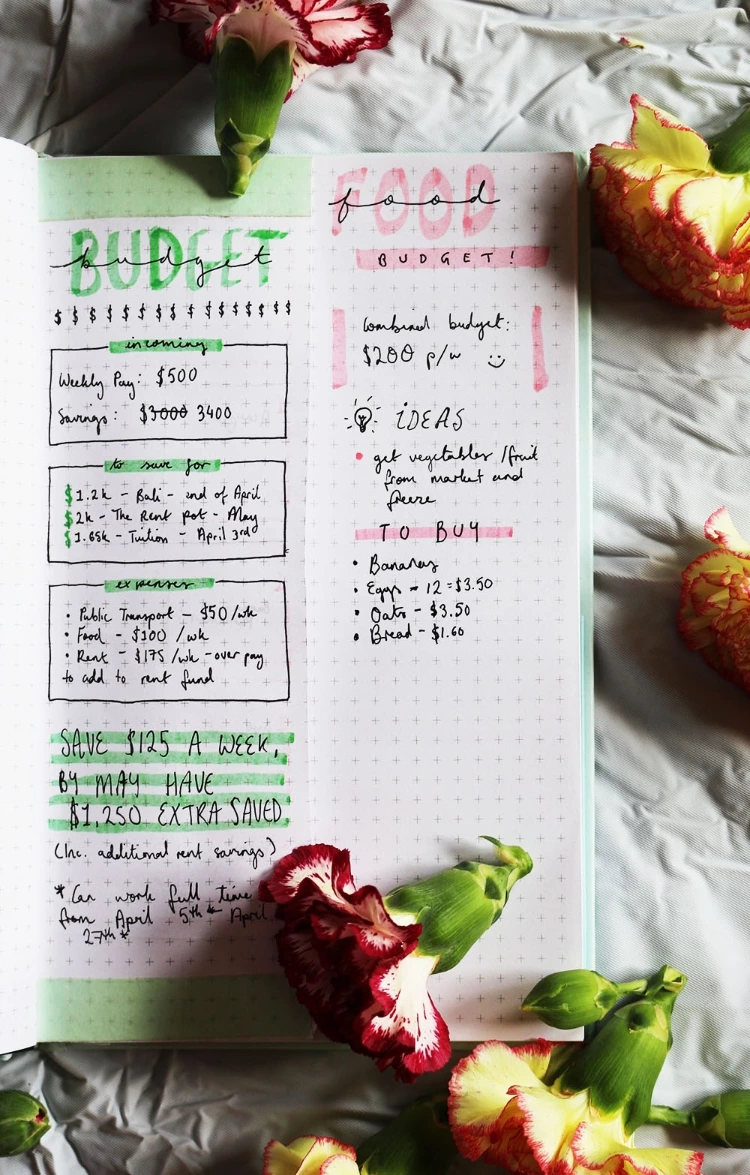 BUDGET
budget
$ $ $ $ $ $ $ $ $ $ $ $ $ $ $ $ $
incoming
Weekly Pay: $500
Savings: $3000 3400
to save for
$1.2k - Bali - end of April
$2k - The Rent pot - May
$1.65k - Tuition - April 3rd
expenses
• Public Transport - $50/wk
• Food - $100 /wk
• Rent - $175 /wk - over pay
to add to rent fund
SAVE $125 A WEEK,
BY MAY HAVE
$1,250 EXTRA SAVED
(Inc. additional rent savings)
*Can work full time
from April 5th - April
27th*
FOOD
food
BUDGET!
Combined budget:
$200 p/w
IDEAS
• get vegetables /fruit
from market and
freeze
TO BUY
• Bananas
• Eggs - 12 = $3.50
• Oats - $3.50
• Bread - $1.60